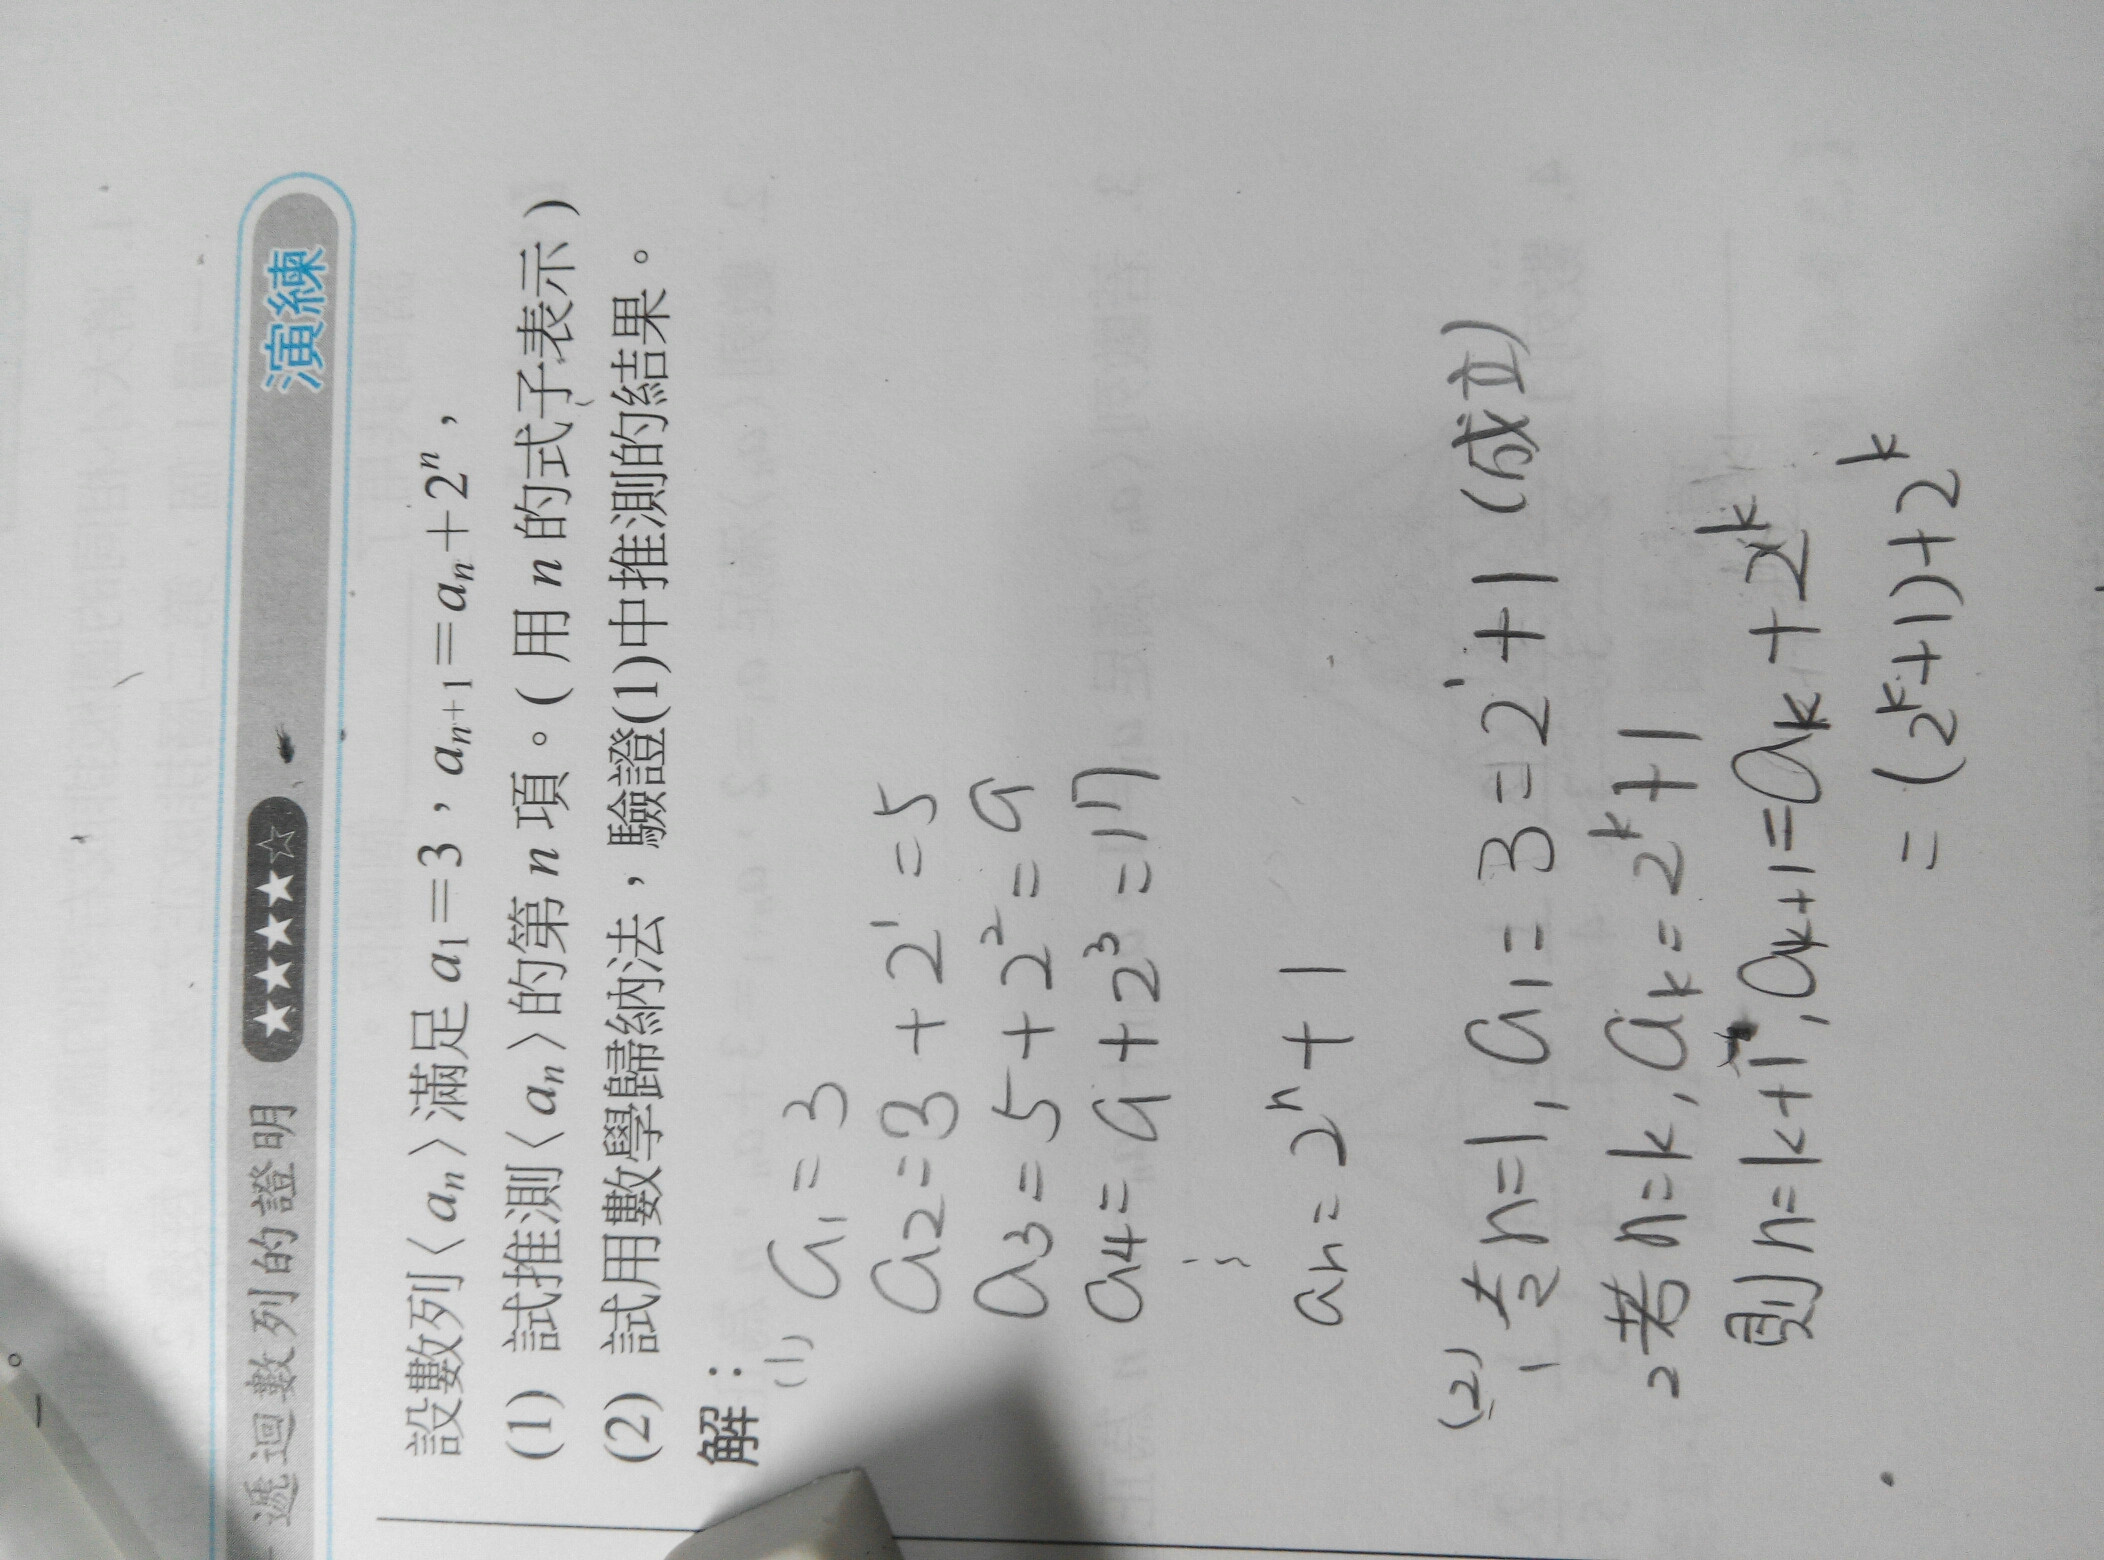 遞迴數列的證明 ★★★★☆ 演練
設數列〈an〉滿足 a1=3，an+1=an+2ⁿ，
(1) 試推測〈an〉的第 n 項。( 用 n 的式子表示 )
(2) 試用數學歸納法，驗證(1)中推測的結果。
解：
(1) a1=3
a2=3+2¹=5
a3=5+2²=9
a4=9+2³=17
⋮
an=2ⁿ+1
(2)
1 若n=1, a1=3=2¹+1 (成立)
2 若n=k, ak=2ᵏ+1
則n=k+1, ak+1=ak+2ᵏ
=(2ᵏ+1)+2ᵏ